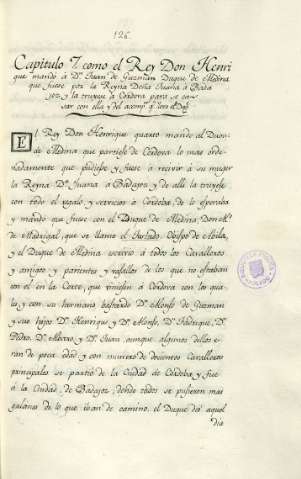 126.
Capitulo 7. como el Rey Don Henri
que mando à Dn. Juan de Guzman Duque de Medina
que fuese por la Reyna Doña Juana à Bada
joz y la truxese à Cordova para se ca
sar con ella y del acomp.
El Rey Don Henrique quarto mandó al Duque
de Medina que partiese de Cordova lo mas orde-
nadamente que pudiese y fuese à recivir à su muger
la Reyna Da. Juana à Badajoz y de alli la truxese
con todo el regalo y servicio à Cordoba, do lo esperaba
y mando que fuese con el Duque de Medina Don Al.
de Madrigal, que se llamo el Tostado Obispo de Abila,
y el Duque de Medina escrivio à todos los Cavalleros
y amigos y parientes y vasallos de los que no estaban
con el en la Corte, que viniesen à Cordova con los qua-
les y con su hermano bastardo Dn. Alonso de Guzman
y sus hijos Dn. Henrique y Dn. Alonso, Dn. Fadrique, Dn.
Pedro, Dn. Alvaro, y Dn. Juan aunque algunos dellos e-
ran de poca edad y con numero de docientos Cavalleros
principales se partió de la Ciudad de Cordoba y fué
à la Ciudad de Badajoz, donde todos se pusieron mas
galanes de lo que iban de camino, el Duque dió aquel
dia